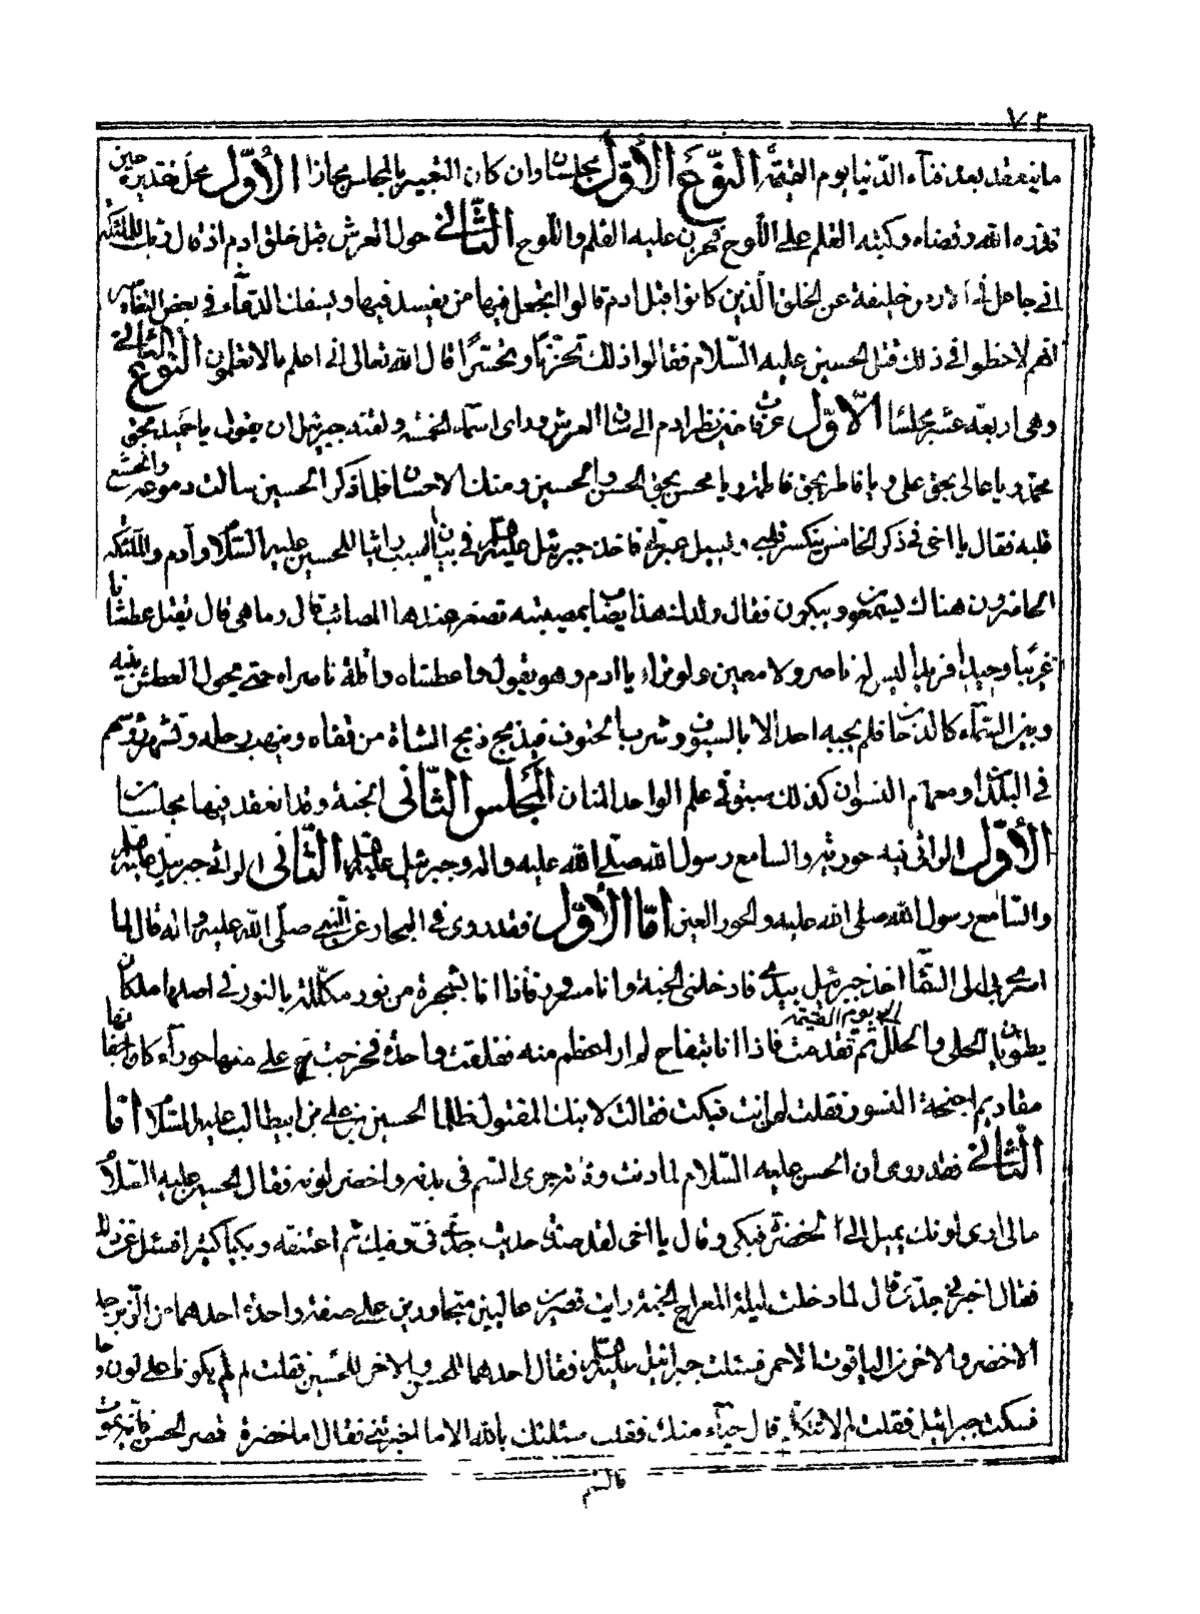 ٧٢
ما ينعقد بعد فناء الدّنيا يوم القيٰمة النّوع الأوّل مجلسان وان كان التعبير بالمجلس مجازا الأوّل محل تقديره حين
قدّره الله وقضاه وكتبه القلم على اللّوح فحزن عليه القلم واللّوح الثّاني حول العرش قبل خلق ادم اذ قال ربك للملئكة
اني جاعل في الارض خليفة عن الخلق الّذين كانوا قبل ادم قالوا اتجعل فيها من يفسد فيها ويسفك الدّماء في بعض التفاسير
انهم لاحظوا في ذلك قتل الحسين عليه السّلام فقالوا ذلك تحزّنا وتحسّرا قال الله تعالى اني اعلم ما لا تعلمون النّوع الثّاني
وهي اربعة عشر مجلسا الأوّل عرفات حين نظر ادم الى ساق العرش وراى اسماء الخمسة ولقنه جبرئيل ان يقول يا حميد بحق
محمّد ويا عالى بحق علي ويا فاطر بحق فاطمة ويا محسن بحق الحسن والحسين ومنك الاحسان فلما ذكر الحسين سالت دموعه وانخشع
قلبه فقال يا اخي في ذكر الخامس ينكسر قلبي وتسيل عبرتي فاخذ جبرئيل عليه السّلام في بيان السبب راثيا للحسين عليه السّلام وآدم والملئكة
الحاضرون هناك يسمعون ويبكون فقال ولدك هذا يصاب بمصيبة تصغر عندها المصائب قال وما هي قال يقتل عطشانا
غريبا وحيدا فريدا ليس له ناصر ولا معين ولو تراه يا ادم وهو يقول وا عطشاه وا قلة ناصراه حتى يحول العطش بينه
وبين السّماء كالدّخان فلم يجبه احد الا بالسيوف وشرب الحتوف فيذبح ذبح الشاة من قفاه وينهب رحله وتشهر رؤسهم
في البلدان ومعهم النسوان كذلك سبق في علم الواحد المنان المجلس الثّاني الجنة وقد انعقد فيها مجلسان
الأوّل الراثي فيه حورية والسامع رسول الله صلى الله عليه واله وجبرئيل عليه السّلام الثّاني الراثي جبرئيل عليه السّلام
والسّامع رسول الله صلى الله عليه والحور العين امّا الأوّل فقد روى في البحار عن النّبي صلّى الله عليه واله انه قال لما
اسري بي الى السّماء اخذ جبرئيل بيدي فادخلني الجنة وانا مسرور فاذا انا بشجرة من نور مكللة بالنور في اصلها ملكان
يطويان الحلي والحلل الى يوم القيٰمة ثم تقدمت فاذا انا بتفاح لم ار اعظم منه ففلقت واحدة فخرجت علي منها حوراء كان اجفانها
مقاديم اجنحة النسور فقلت لمن انت فبكت فقالت لابنك المقتول ظلما الحسين بن علي بن ابيطالب عليه السّلام امّا
الثّاني فقد روى ان الحسن عليه السّلام لما دنت وفاته وجرى السم في بدنه واخضر لونه فقال الحسين عليه السّلام
مالي ارى لونك يميل الى الخضرة فبكى وقال يا اخي لقد صحّ حديث جدّي فيّ وفيك ثم اعتنقه وبكيا كثيرا فسئل عن ذلك
فقال اخبرني جدّي قال لما دخلت ليلة المعراج الجنة رايت قصرين عاليين متجاورين على صفة واحدة احدهما من الزّبرجد
الاخضر والاخر من الياقوت الاحمر فسئلت جبرائيل عليه السّلام فقال احدهما للحسن والاخر للحسين فقلت لم لم يكونا على لون واحد
فسكت جبرائيل فقلت لم لا تتكلم قال حياء منك فقلت سئلتك بالله الا ما اخبرتني فقال اما خضرة قصر الحسن فانه يموت
بالسّم